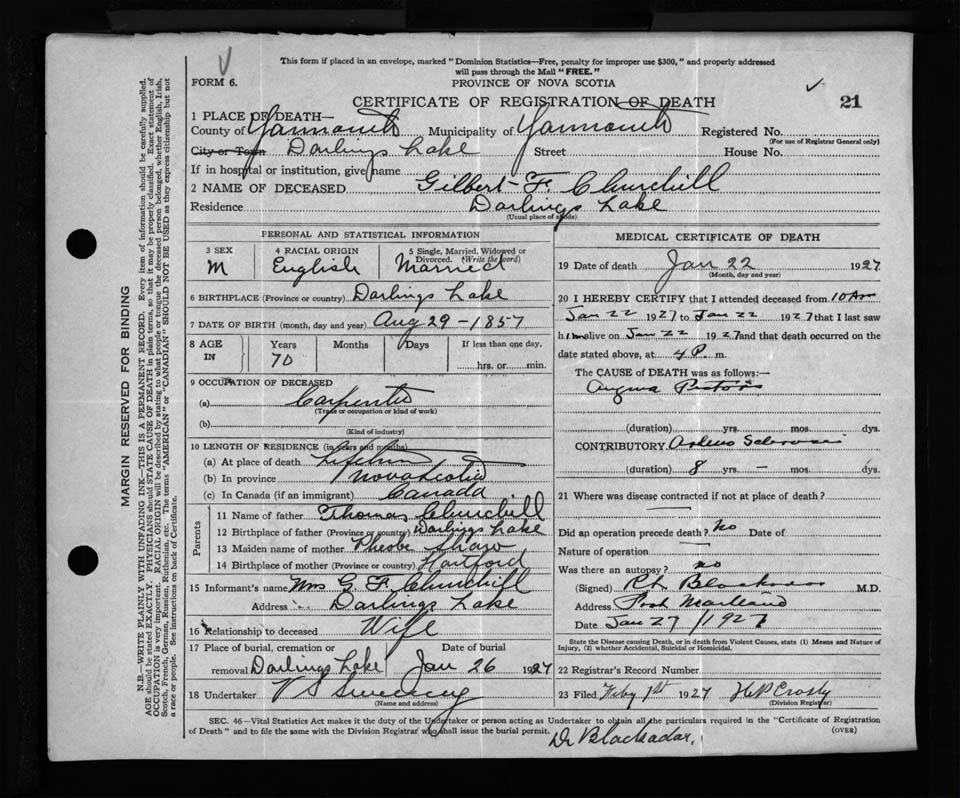 This form if placed in an envelope, marked "Dominion Statistics—Free, penalty for improper use $300," and properly addressed
will pass through the Mail "FREE."
FORM 6.
PROVINCE OF NOVA SCOTIA
CERTIFICATE OF REGISTRATION OF DEATH
21
1 PLACE OF DEATH—
County of Yarmouth Municipality of Yarmouth Registered No.
(For use of Registrar General only)
City or Town Darlings Lake Street House No.
If in hospital or institution, give name
2 NAME OF DECEASED Gilbert F. Churchill
Residence Darlings Lake
(Usual place of abode)
PERSONAL AND STATISTICAL INFORMATION
3 SEX M
4 RACIAL ORIGIN English
5 Single, Married, Widowed or Divorced. (Write the word) Married
6 BIRTHPLACE (Province or country) Darlings Lake
7 DATE OF BIRTH (month, day and year) Aug 29 - 1857
8 AGE IN Years Months Days If less than one day,
70 hrs. or min.
9 OCCUPATION OF DECEASED
(a) Carpenter
(Trade or occupation or kind of work)
(b)
(Kind of industry)
10 LENGTH OF RESIDENCE (in years and months)
(a) At place of death Lifetime
(b) In province Nova Scotia
(c) In Canada (if an immigrant) Canada
Parents
11 Name of father Thomas Churchill
12 Birthplace of father (Province or country) Darlings Lake
13 Maiden name of mother Pheobe Shaw
14 Birthplace of mother (Province or country) Hartford
15 Informant's name Mrs G. F. Churchill
Address Darlings Lake
16 Relationship to deceased Wife
17 Place of burial, cremation or Date of burial
removal Darlings Lake Jan 26 1927
18 Undertaker V S Sweeney
(Name and address)
MEDICAL CERTIFICATE OF DEATH
19 Date of death Jan 22 1927
(Month, day and year)
20 I HEREBY CERTIFY that I attended deceased from 10 Am
Jan 22 1927 to Jan 22 1927 that I last saw
him alive on Jan 22 1927 and that death occurred on the
date stated above, at 4 P. m.
The CAUSE of DEATH was as follows:—
Angina Pectoris
(duration) yrs. mos. dys.
CONTRIBUTORY Arterio Sclerosis
(duration) 8 yrs. — mos. dys.
21 Where was disease contracted if not at place of death?
Did an operation precede death? No Date of
Nature of operation
Was there an autopsy? no
(Signed) Blackadar M.D.
Address Port Maitland
Date Jan 27 / 1927
State the Disease causing Death, or in death from Violent Causes, state (1) Means and Nature of
Injury, (2) whether Accidental, Suicidal or Homicidal.
22 Registrar's Record Number
23 Filed Feby 1st 1927 H P Crosby
(Division Registrar)
SEC. 46—Vital Statistics Act makes it the duty of the Undertaker or person acting as Undertaker to obtain all the particulars required in the "Certificate of Registration
of Death" and to file the same with the Division Registrar who shall issue the burial permit. (OVER)
Dr Blackadar,
MARGIN RESERVED FOR BINDING
N.B.—WRITE PLAINLY WITH UNFADING INK—THIS IS A PERMANENT RECORD. Every item of information should be carefully supplied.
AGE should be stated EXACTLY. PHYSICIANS should STATE CAUSE OF DEATH in plain terms, so that it may be properly classified. Exact statement of
OCCUPATION is very important. RACIAL ORIGIN will be described by stating to what people or tongue the deceased person belonged, whether English, Irish,
Scotch, French, German, Russian, Ruthenian, etc. The terms "AMERICAN" or "CANADIAN" SHOULD NOT BE USED as they express citizenship but not
a race or people. See instructions on back of Certificate.